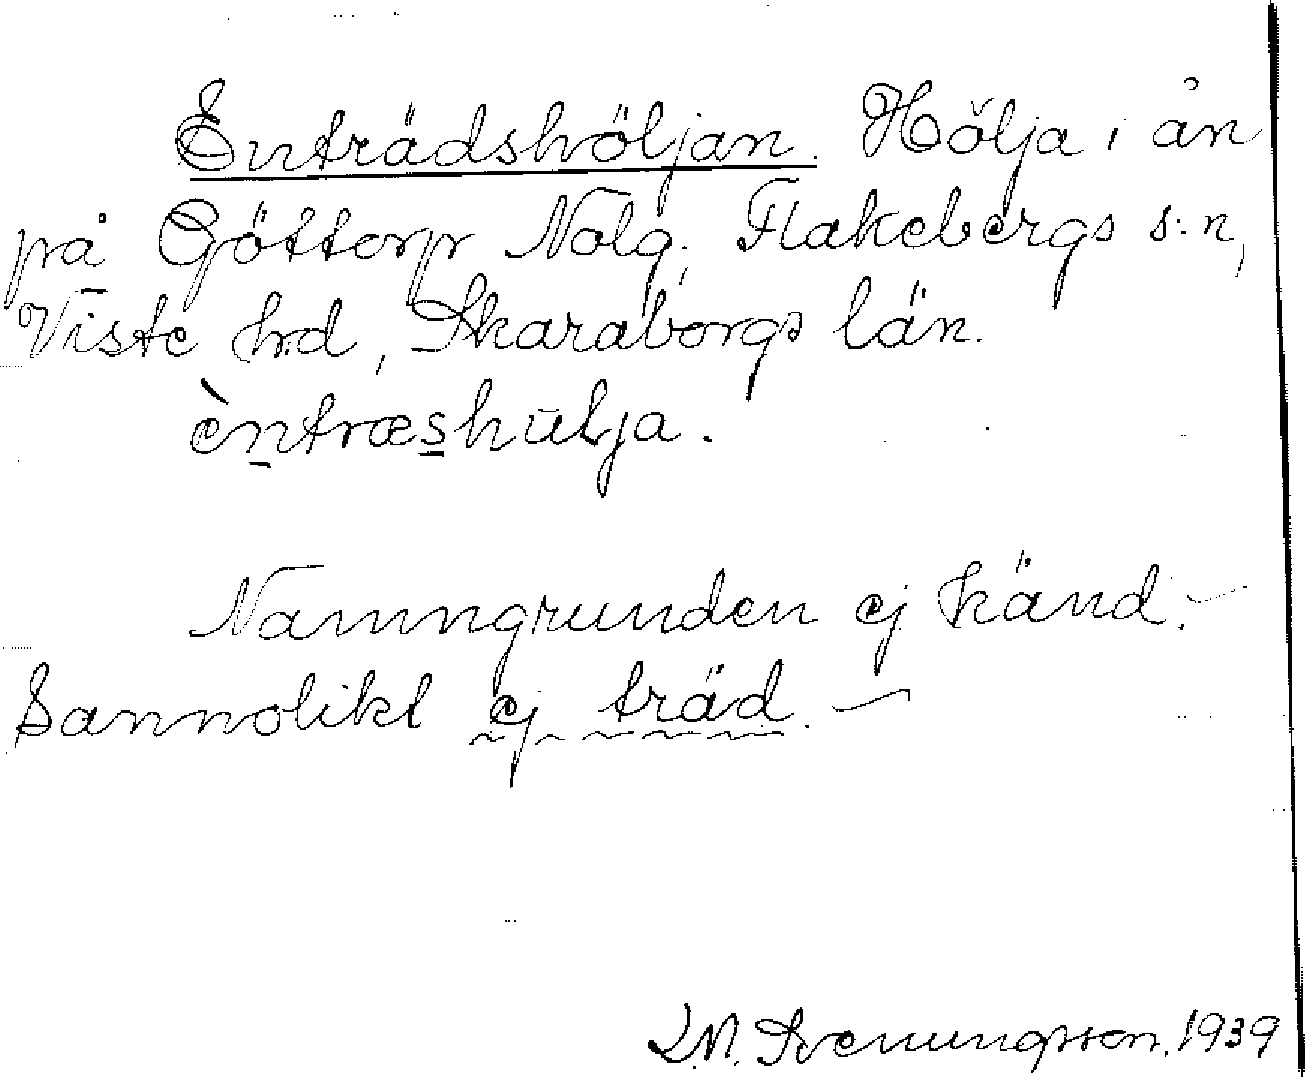 Enträdshöljan. Hölja i ån
på Göttorp Nolg. Flakebergs s:n,
Viste h:d, Skaraborgs län.
èntræshulja.
Namngrunden ej känd. –
Sannolikt ej träd. –
L.M. Svenungsson. 1939